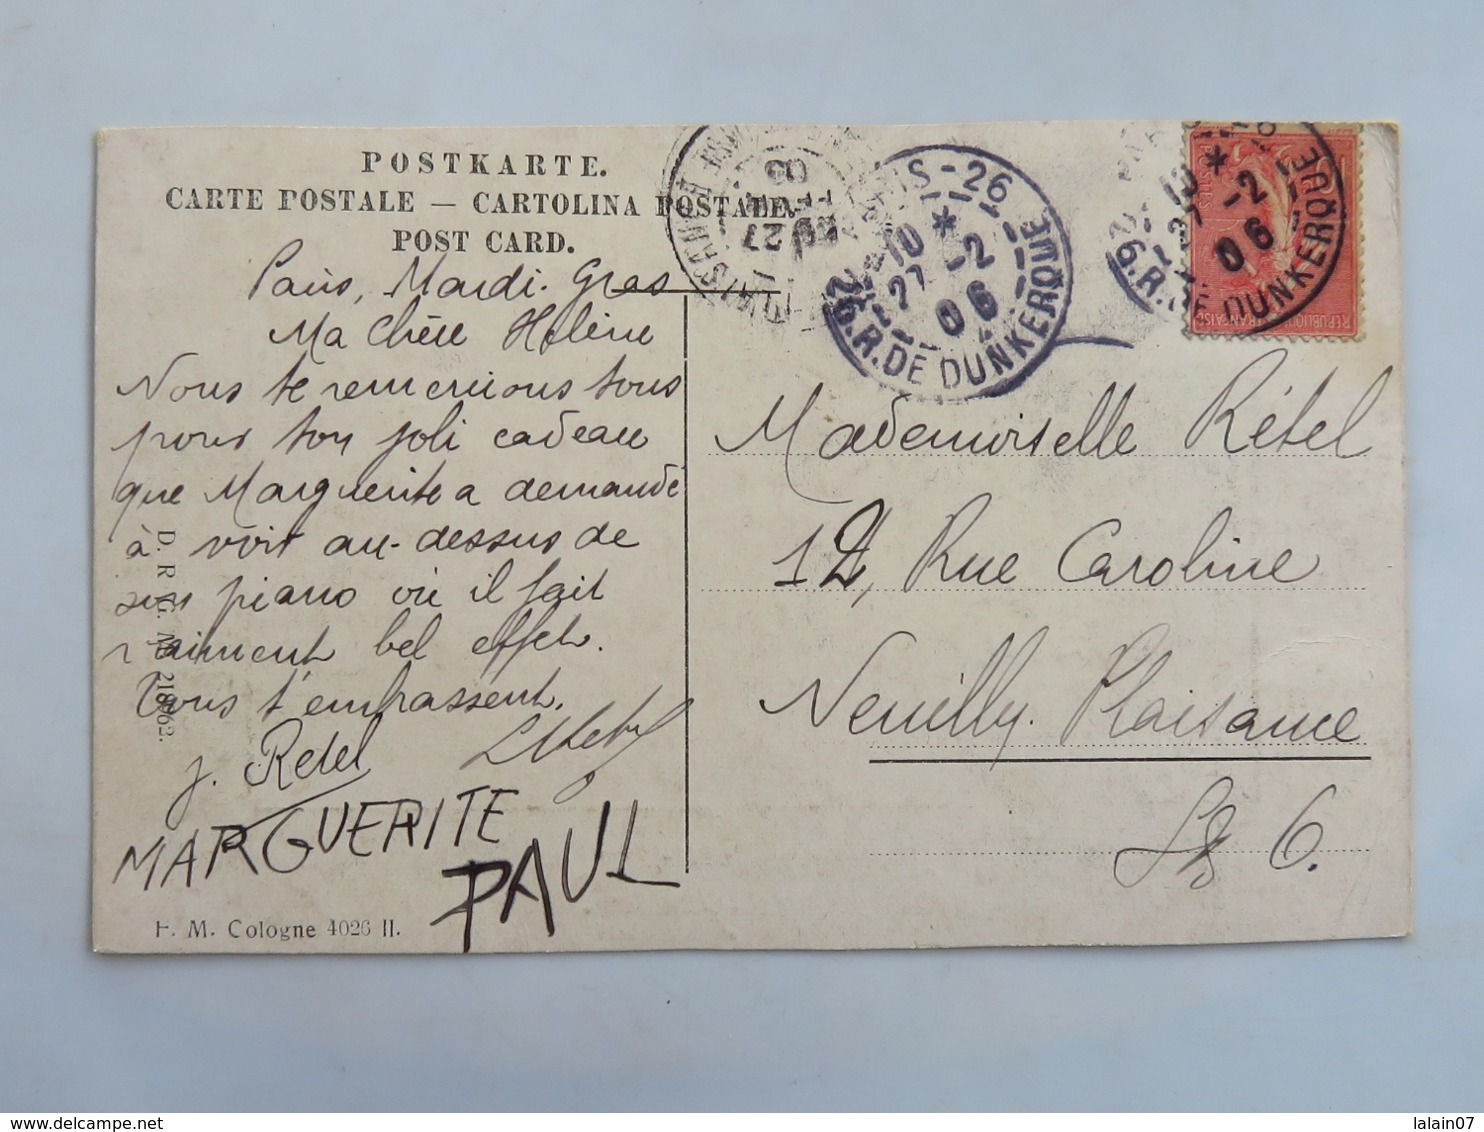 POSTKARTE.
CARTE POSTALE — CARTOLINA POSTALE.
POST CARD.
Paris, Mardi-Gras
Ma Chère Hélène
Nous te remercions tous
pour ton joli cadeau
que Marguerite a demandé
à voir au-dessus de
son piano où il fait
vraiment bel effet.
Tous t'embrassent.
J. Retel
MARGUERITE
PAUL
F. M. Cologne 4026 II.
D. R. G. M. 218762.
PARIS-26
10 *
27 -2
06
6. R. DE DUNKERQUE
27
10 *
27 -2
06
6. R. DE DUNKERQUE
REPUBLIQUE FRANÇAISE
Mademoiselle Rétel
12, Rue Caroline
Neuilly-Plaisance
lalain07